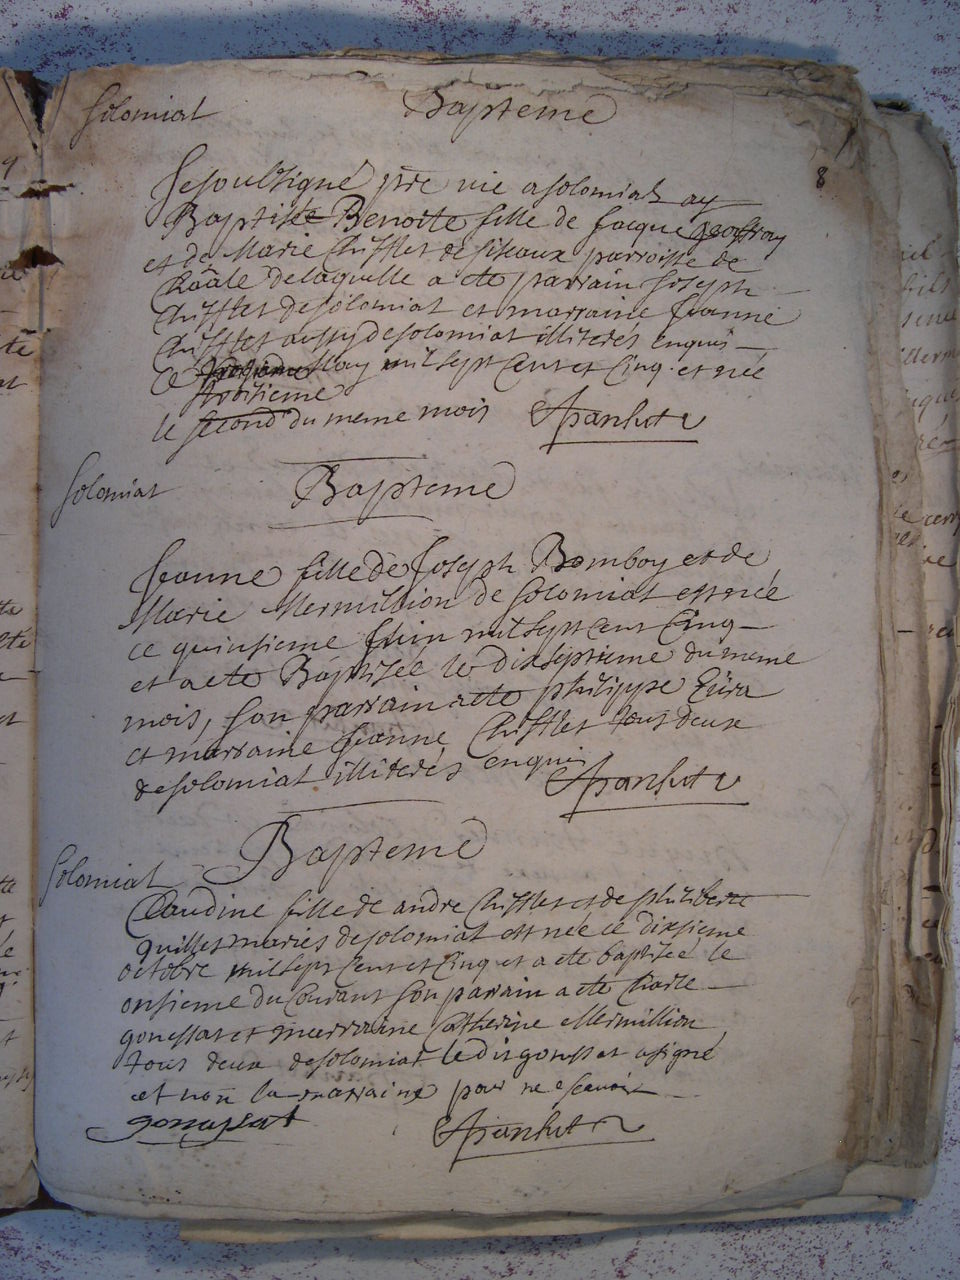 Solomiat Bapteme
8
Je soubsigné pre vic a solomiat ay
Baptisée Benoite fille de Jacque
et de Marie Chifflet de parroisse de
de laquelle a ete parrain Joseph
Chifflet de solomiat et marraine Jeanne
Chifflet aussy de solomiat illiterés enquis
ce May mil sept cent et cinq et née
troisieme
le second du meme mois
Solomiat Bapteme
Jeanne fille de Joseph Bomboy et de
Marie Mermillion de solomiat est née
ce quinsieme Juin mil sept cent cinq
et a ete Baptisée le dixseptieme du meme
mois, son parrain a ete philippe
et marraine Jeanne Chifflet tous deux
de solomiat illiterés enquis
Bapteme
Solomiat
Claudine fille de andre Chifflet et de philiberte
quillet mariés de solomiat est née ce dixsieme
octobre mil sept cent et cinq et a ete baptisée le
onsieme du courant son parain a ete Claude
gonessat et marraine Catherine Mermillion
tous deux de solomiat le dit gonessat a signé
et non la marraine pour ne scavoir
gonassat